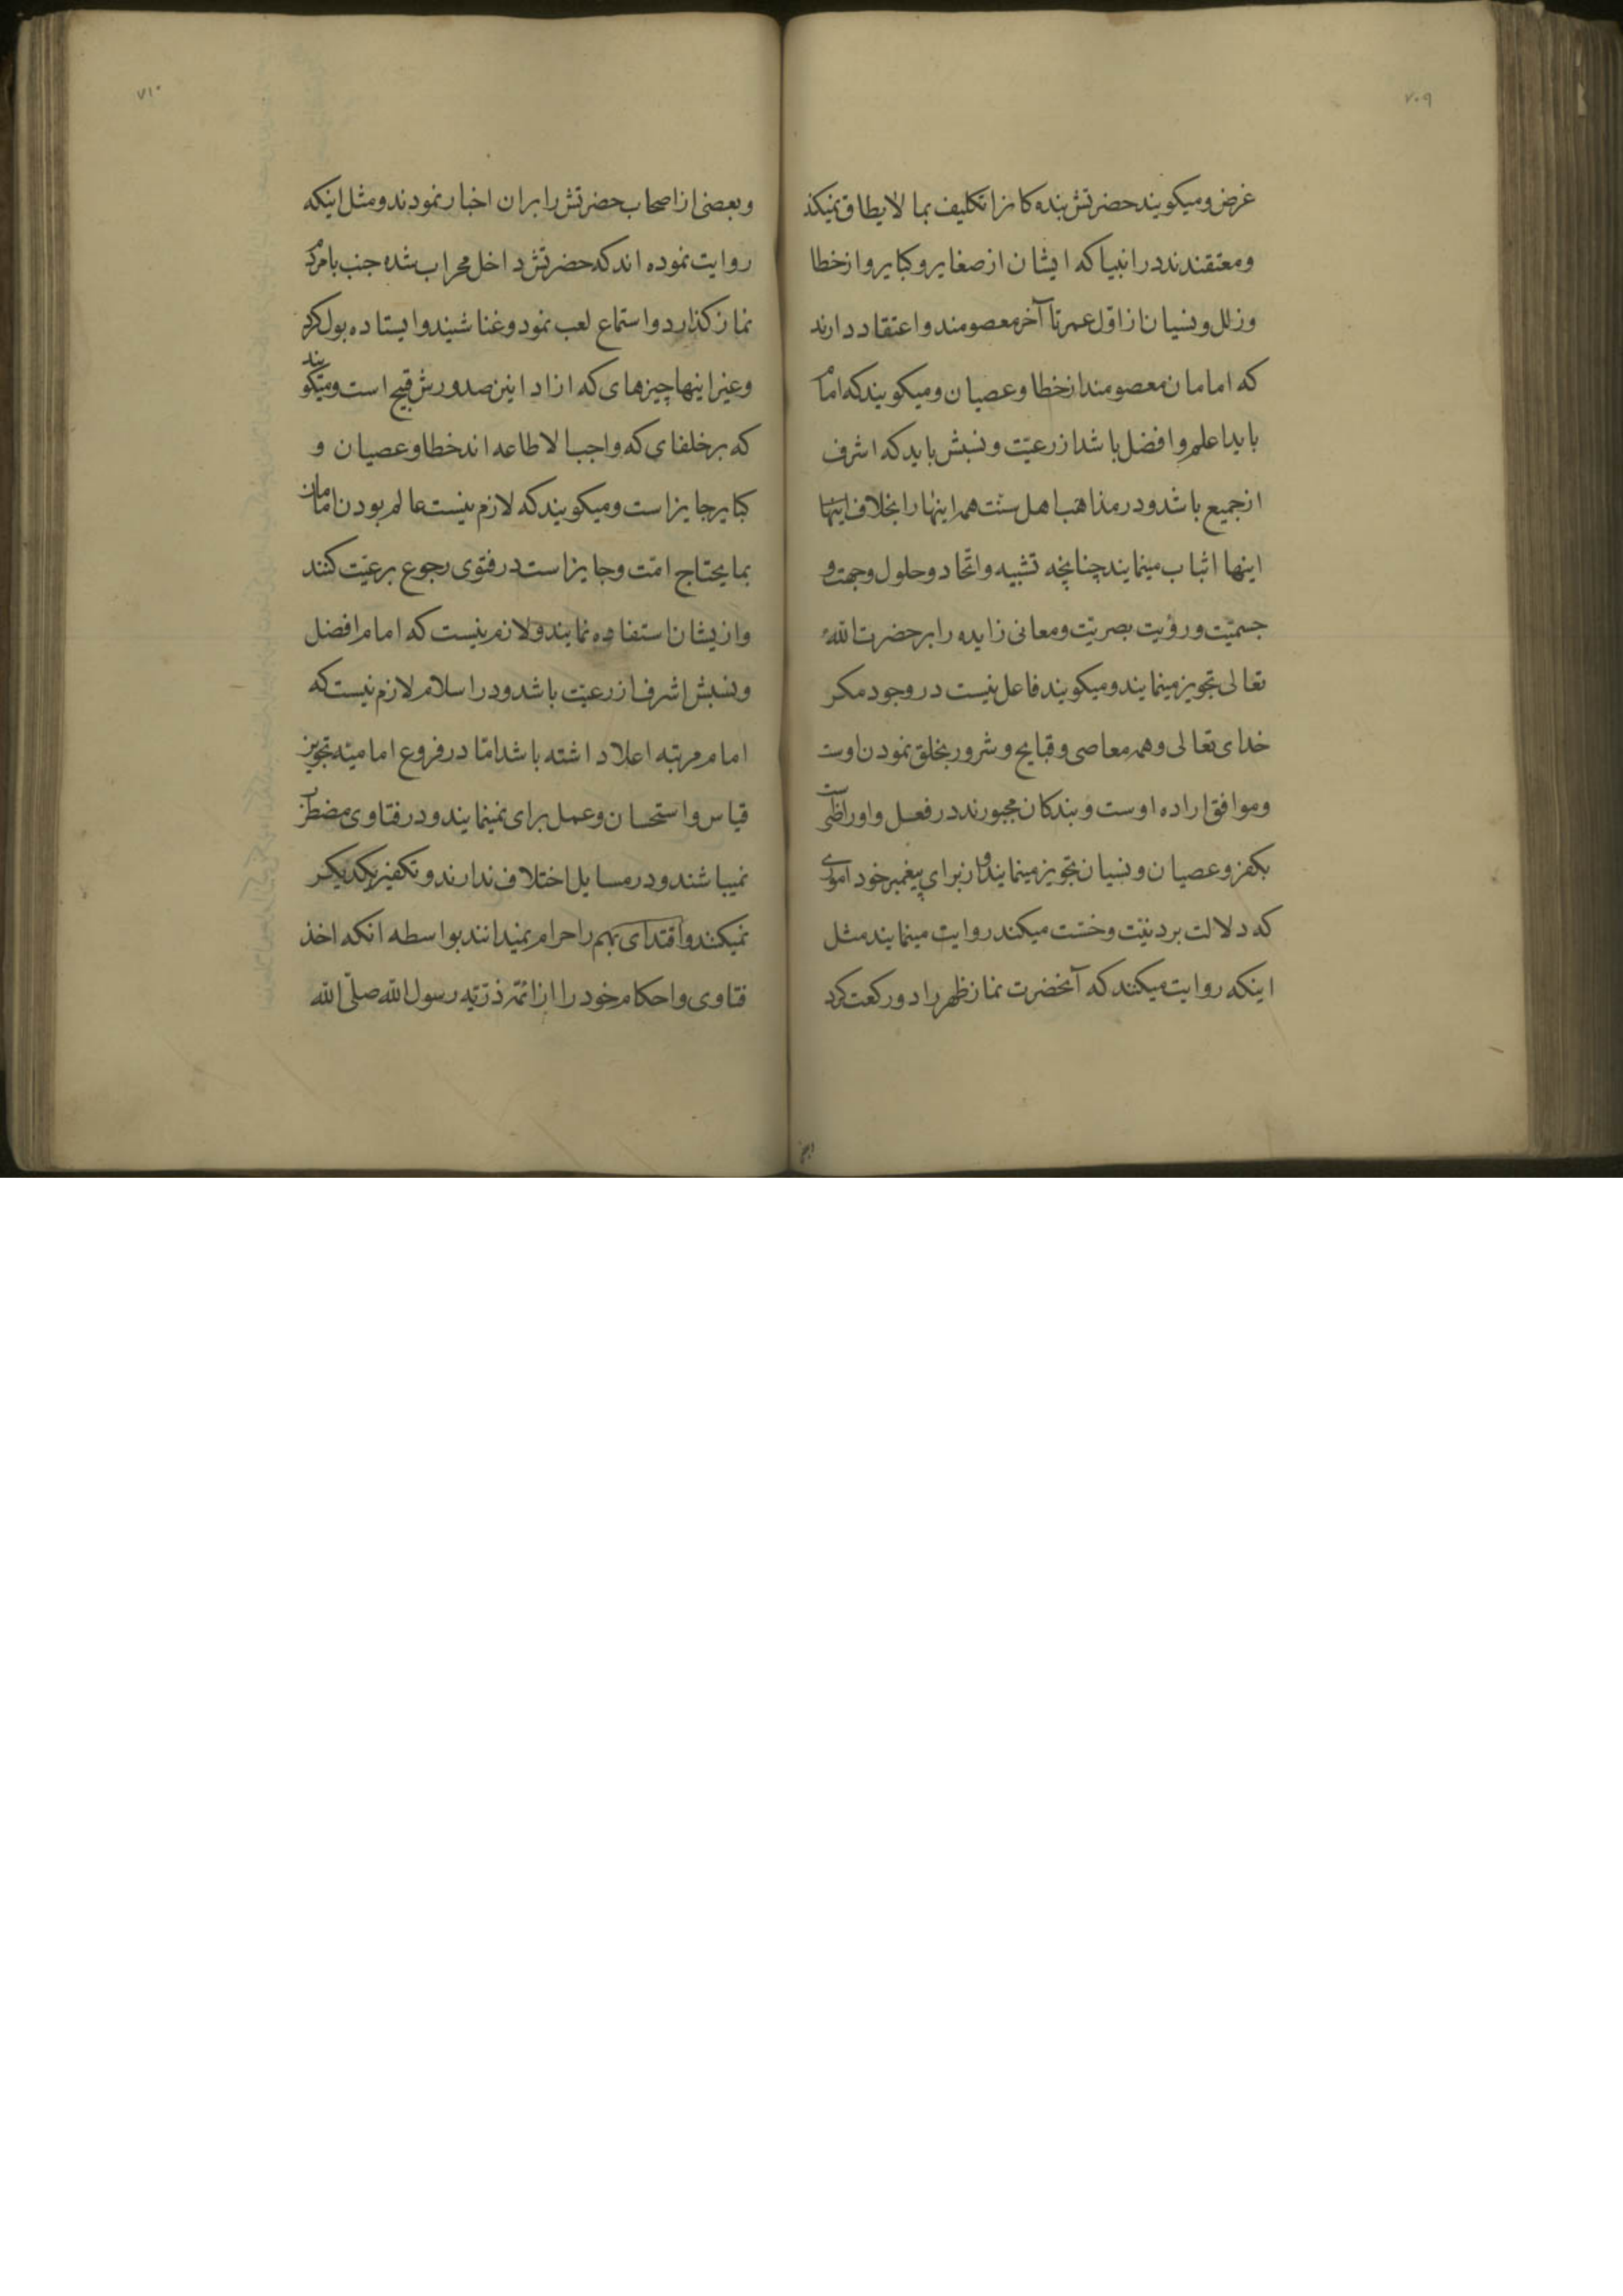 ۷۰۹
غرض و میکویند حضرتش بنده کانرا تکلیف بما لا یطاق نمیکند
و معتقندند در انبیا که ایشان از صغایر و کبایر و از خطا
و زلل و نسیان از اوّل عمر تا آخر معصومند و اعتقاد دارند
که امامان معصومند از خطا و عصیان و میکویند که امام
باید اعلم و افضل باشد از رعیّت و نسبش باید که اشرف
از جمیع باشد و در مذاهب اهل سنّت همه اینها را بخلاف اینها
اینها اثبات مینمایند چنانچه تشبیه و اتّحاد و حلول و جهت و
جسمیّت و رؤیت بصریّت و معانی زایده را بر حضرت الله
تعالی تجویز مینمایند و میکویند فاعل نیست در وجود مکر
خدای تعالی و همه معاصی و قبایح و شرور بخلق نمودن اوست
و موافق اراده اوست و بندکان مجبورند در فعل و او راضیست
بکفر و عصیان و نسیان تجویز مینمایند و از برای پیغمبر خود اموری
که دلالت بر دنیّت و خسّت میکند روایت مینمایند مثل
اینکه روایت میکنند که آنحضرت نماز ظهر را دو رکعت کرد
۷۱۰
و بعضی از اصحاب حضرتش را بران اخبار نمودند و مثل اینکه
روایت نموده اند که حضرتش داخل محراب شده جنب با مردم
نماز کذارد و استماع لعب نمود و غنا شیند و ایستاده بول کرد
و غیر اینها چیزهای که از ادانین صدورش قبیح است و میکویند
که بر خلفای که واجب الاطاعه اند خطا و عصیان و
کبایر جایز است و میکویند که لازم نیست عالم بودن امامان
بما یحتاج امّت و جایز است در فتوی رجوع برعیّت کنند
و ازیشان استفاده نمایند و لازم نیست که امام افضل
و نسبش اشرف از رعیّت باشد و در اسلام لازم نیست که
امام مرتبه اعلا داشته باشد امّا در فروع امامیّه تجویز
قیاس و استحسان و عمل برای نمینمایند و در فتاوی مضطرب
نمیباشند و در مسایل اختلاف ندارند و تکفیر یکدیکر
نمیکنند و اقتدای بهم را حرام نمیدانند بواسطه انکه اخذ
فتاوی و احکام خود را از ائمّه ذرّیّه رسول الله صلّی الله